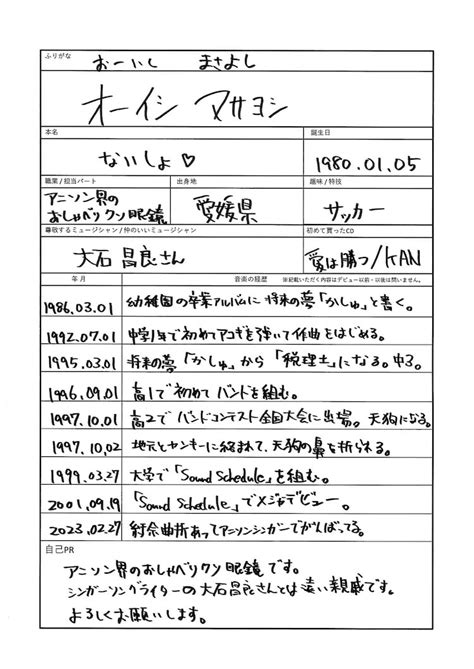 ふりがな
おーいし まさよし
オーイシ マサヨシ
本名 誕生日
ないしょ♡ 1980.01.05
職業/担当パート 出身地 趣味/特技
アニソン界の
おしゃべりクソ眼鏡 愛媛県 サッカー
尊敬するミュージシャン/仲のいいミュージシャン 初めて買ったCD
大石昌良さん 愛は勝つ/KAN
年月 音楽の経歴 ※記載いただく内容はデビュー以前・以後は問いません。
1986.03.01 幼稚園の卒業アルバムに将来の夢「かしゅ」と書く。
1992.07.01 中学1年で初めてアコギを弾いて作曲をはじめる。
1995.03.01 将来の夢「かしゅ」から「税理士」になる。中3。
1996.09.01 高1で初めてバンドを組む。
1997.10.01 高2でバンドコンテスト全国大会に出場。天狗になる。
1997.10.02 地元とヤンキーに絡まれて、天狗の鼻を折られる。
1999.03.27 大学で「Sound Schedule」を組む。
2001.09.19 「Sound Schedule」でメジャーデビュー。
2023.02.27 紆余曲折あってアニソンシンガーでがんばってる。
自己PR
アニソン界のおしゃべりクソ眼鏡です。
シンガーソングライターの大石昌良さんとは遠い親戚です。
よろしくお願いします。